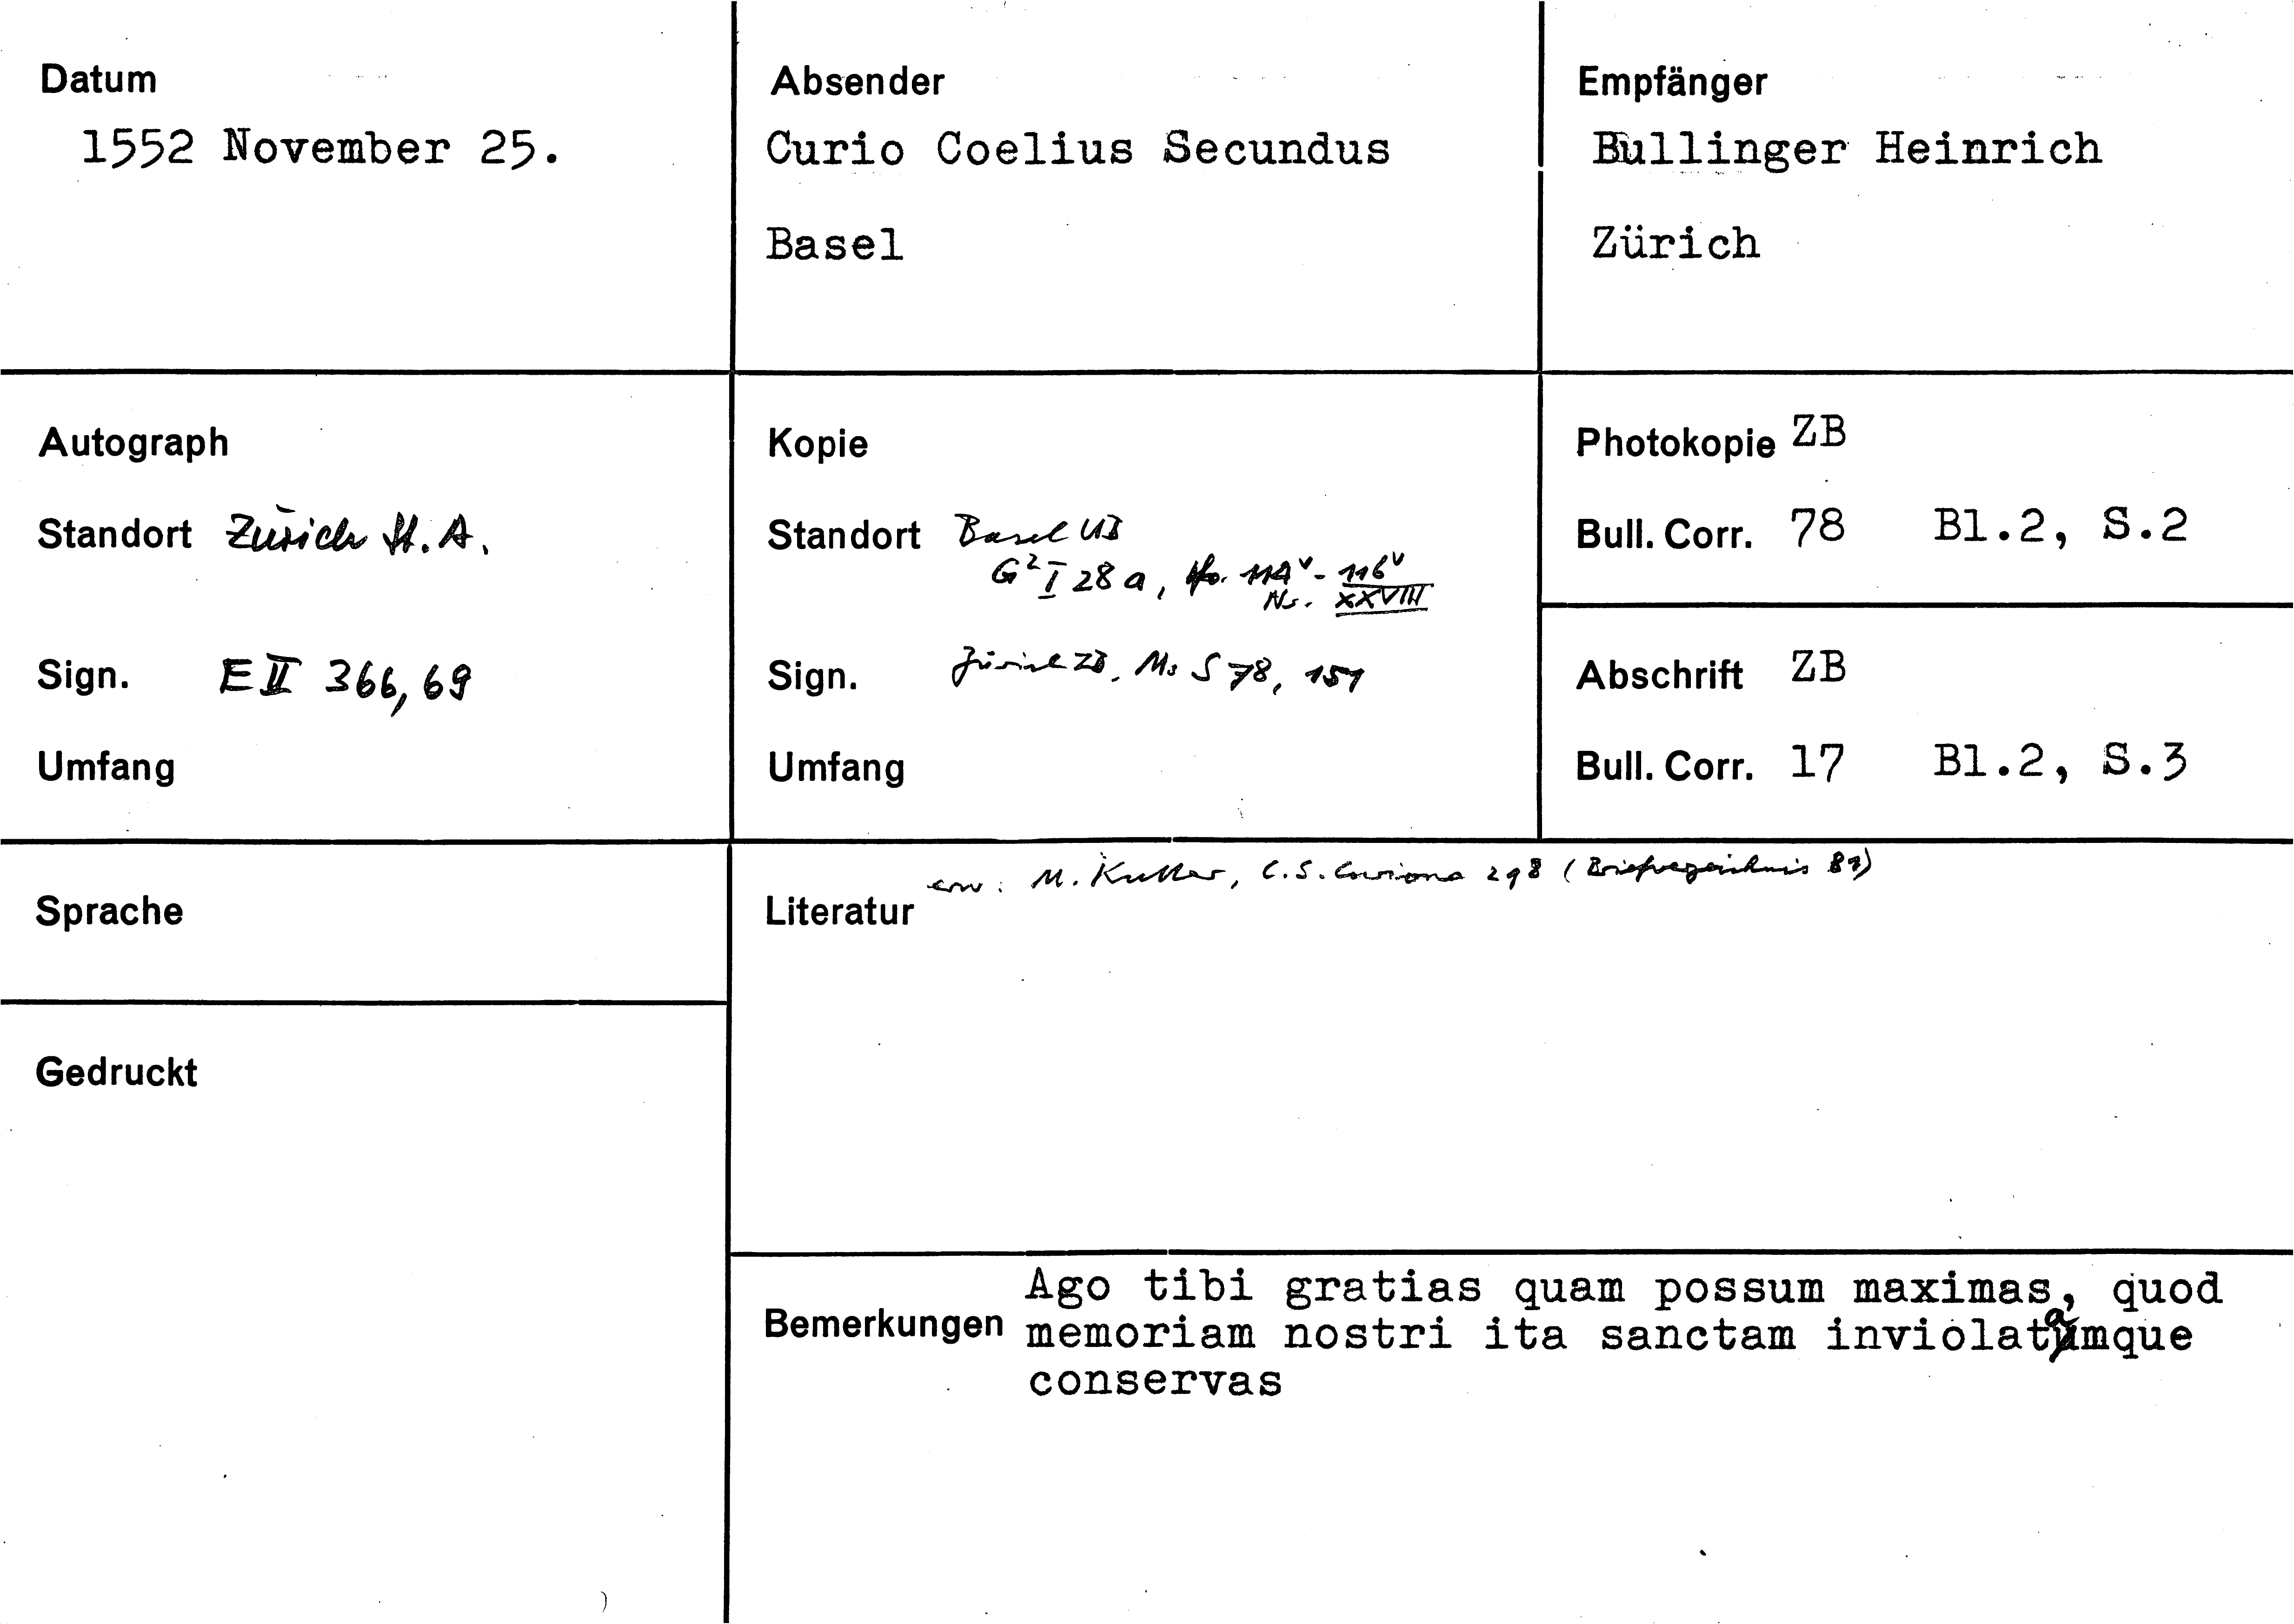 Datum
1552 November 25.
Absender
Curio Coelius Secundus
Basel
Empfänger
Bullinger Heinrich
Zürich
Autograph
Standort Zürich St. A.
Sign. E II 366, 69
Umfang
Kopie
Standort Basel UB
G² I 28 a, fo. 114ᵛ - 116ᵛ
Nr. XXVIII
Sign. Zürich ZB, Ms S 78, 151
Umfang
Photokopie ZB
Bull. Corr. 78 Bl.2, S.2
Abschrift ZB
Bull. Corr. 17 Bl.2, S.3
Sprache
Gedruckt
Literatur erw: M. Kutter, C.S. Curione 298 (Briefverzeichnis 89)
Bemerkungen
Ago tibi gratias quam possum maximas, quod
memoriam nostri ita sanctam inviolatamque
conservas